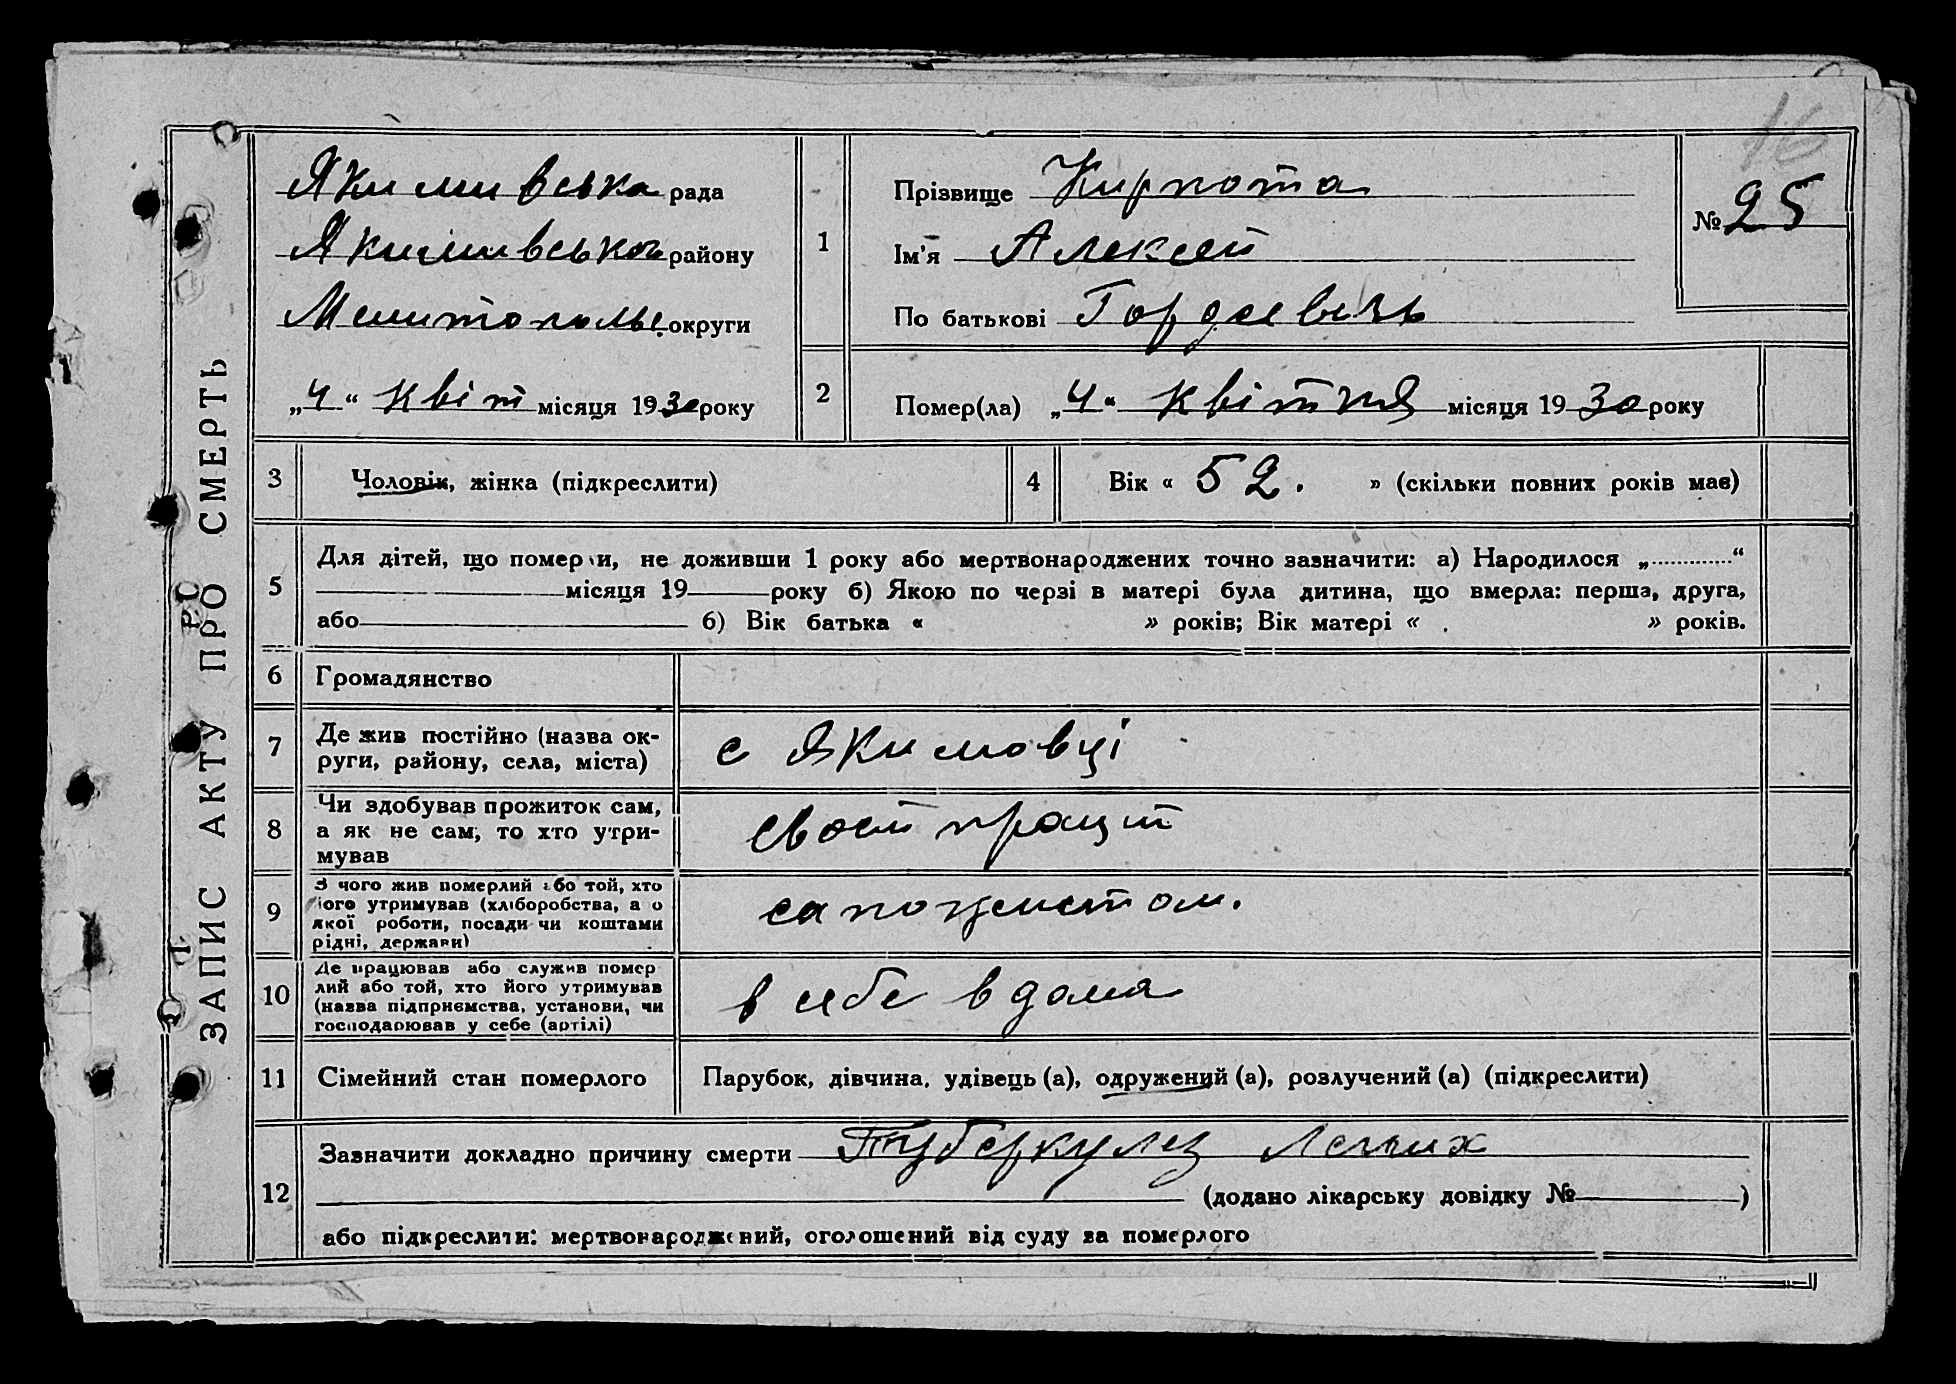 16
ЗАПИС АКТУ ПРО СМЕРТЬ
Якимивська рада
Якимивськой району
Мелитопольс. округи
„4“ Квіт місяця 1930 року
1
Прізвище Кирпота
Ім'я Алексей
По батькові Гордеевичь
№ 25
2
Помер(ла) „4“ Квітня місяця 1930 року
3
Чоловік, жінка (підкреслити)
4
Вік « 52. » (скільки повних років має)
5
Для дітей, що померли, не доживши 1 року або мертвонароджених точно зазначити: а) Народилося „..............“
місяця 19 року б) Якою по черзі в матері була дитина, що вмерла: перша, друга,
або б) Вік батька « » років; Вік матері « » років.
6
Громадянство
7
Де жив постійно (назва ок-
руги, району, села, міста)
с Якимовці
8
Чи здобував прожиток сам,
а як не сам, то хто утри-
мував
своей працій
9
З чого жив померлий або той, хто
його утримував (хліборобства, а о
якої роботи, посади чи коштами
рідні, держави)
10
Де працював або служив помер
лий або той, хто його утримував
(назва підприємства, установи, чи
господарював у себе (артілі)
в себе вдома
11
Сімейний стан померлого
Парубок, дівчина, удівець (а), одружений (а), розлучений (а) (підкреслити)
12
Зазначити докладно причину смерти Туберкулез Легких
(додано лікарську довідку № )
або підкреслити: мертвонароджений, оголошений від суду за померлого